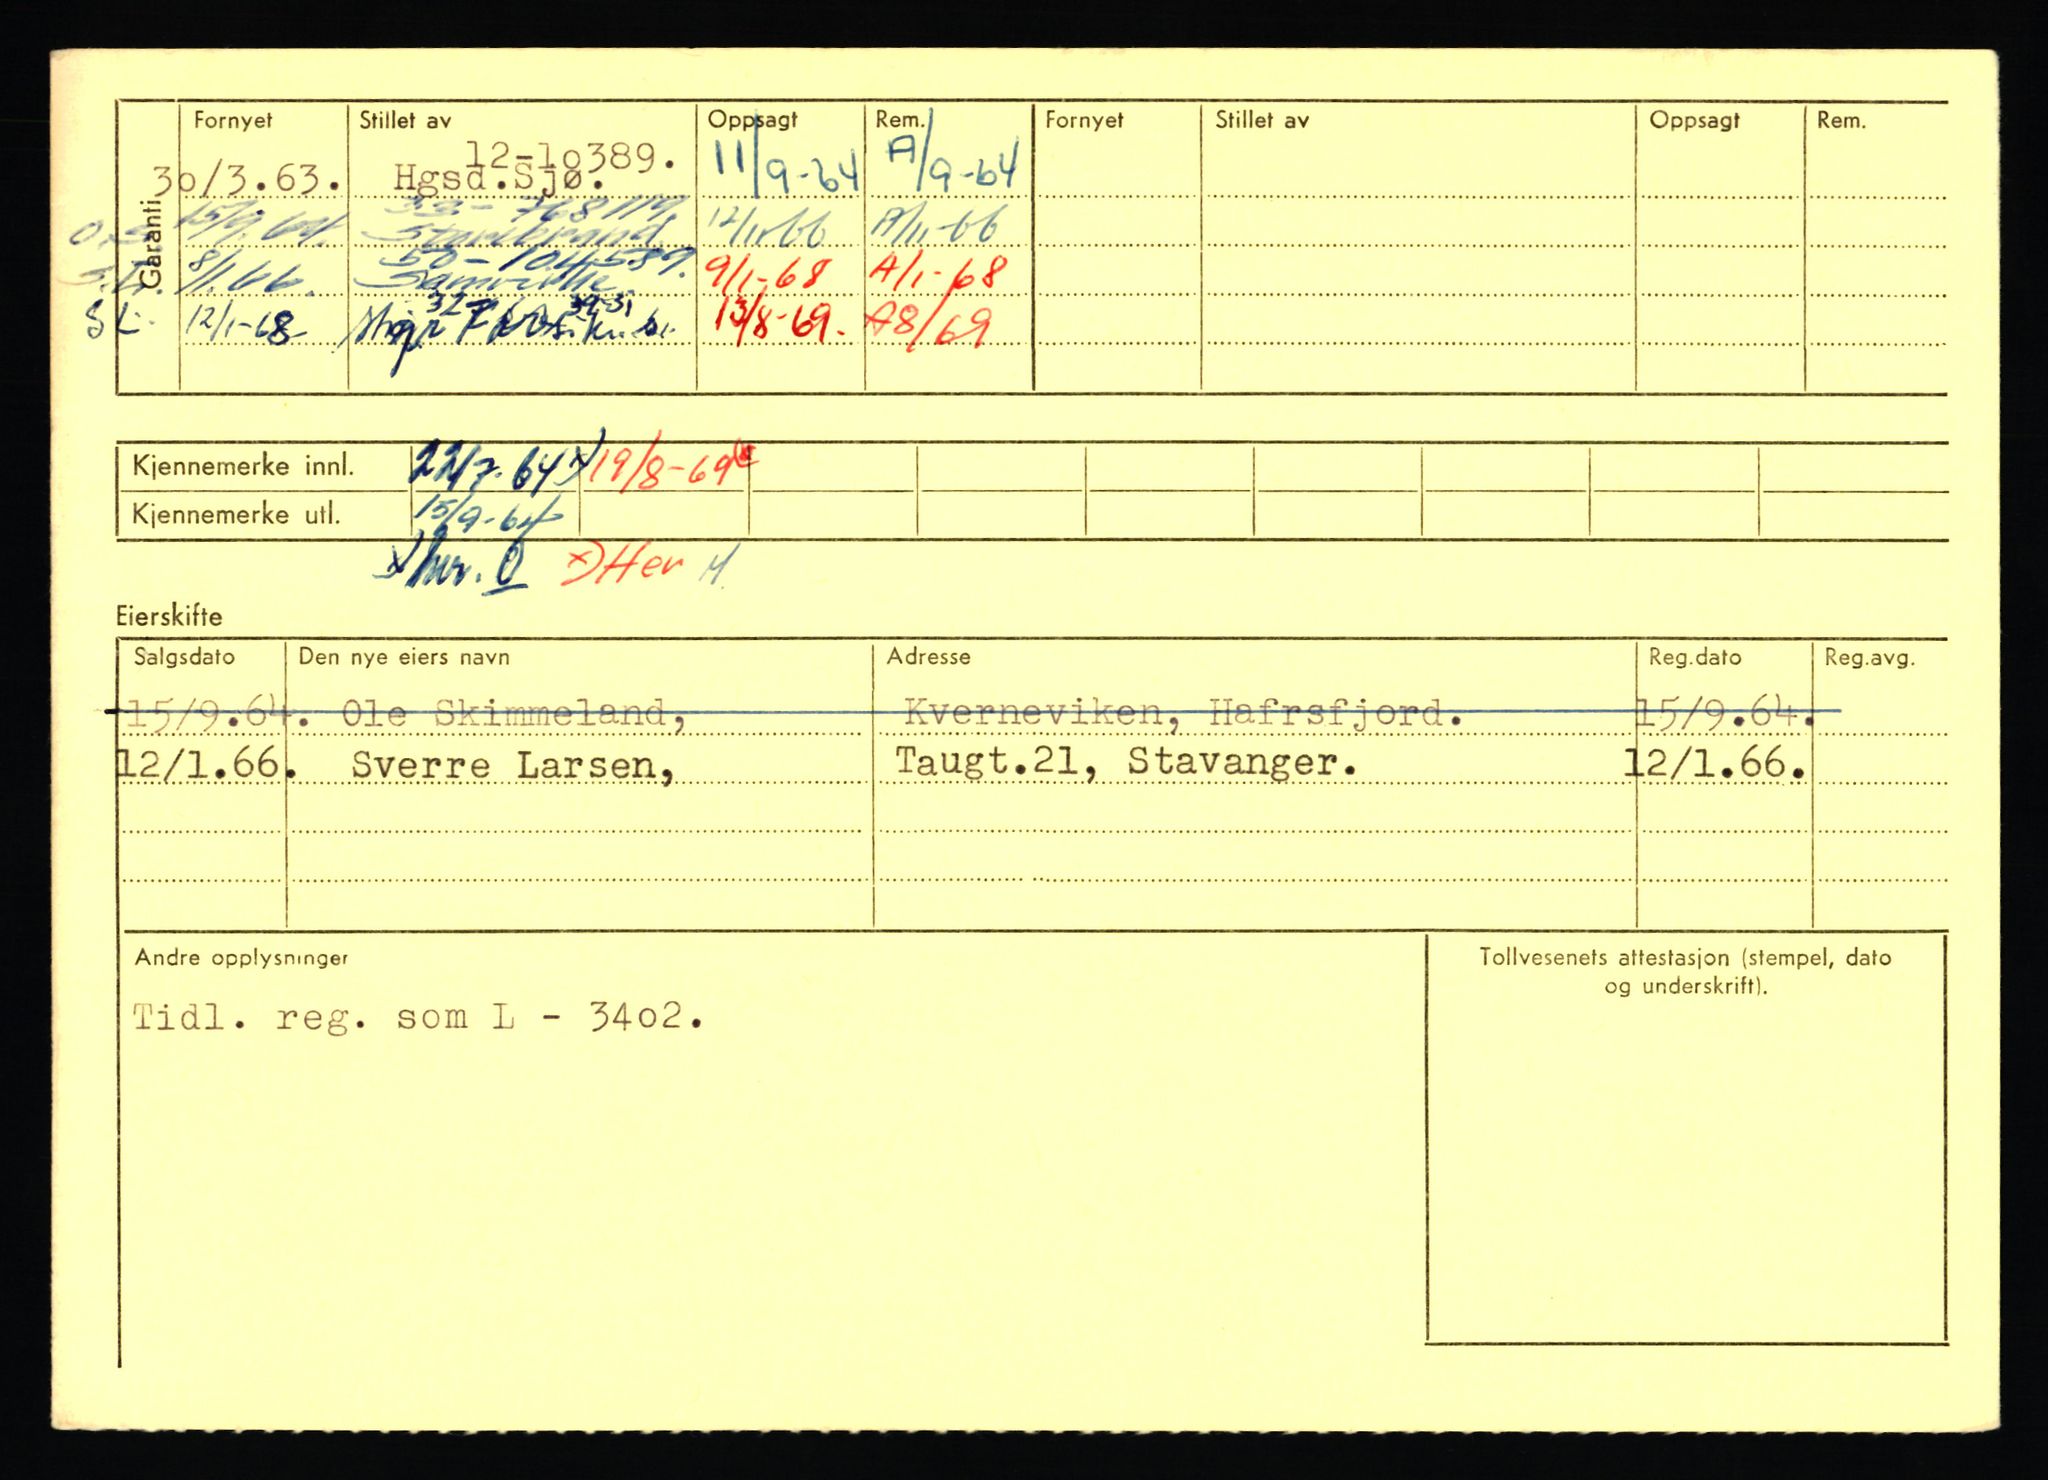 Garanti
Fornyet Stillet av Oppsagt Rem. Fornyet Stillet av Oppsagt Rem.
12-1o389.
3o/3.63. Hgsd.Sjø. 11/9-64 A/9-64
15/9.64. Storebrand 12/11-66 A/11-66
8/1.66. Samvirke 9/1-68 A/1-68
S L. 12/1-68 13/8-69. A8/69
Kjennemerke innl. 22/7.64 x) 19/8-69
Kjennemerke utl. 15/9-64
x) her. x) Her
Eierskifte
Salgsdato Den nye eiers navn Adresse Reg.dato Reg.avg.
15/9.64. Ole Skimmeland, Kverneviken, Hafrsfjord. 15/9.64.
12/1.66. Sverre Larsen, Taugt.21, Stavanger. 12/1.66.
Andre opplysninger
Tollvesenets attestasjon (stempel, dato
og underskrift).
Tidl. reg. som L - 34o2.